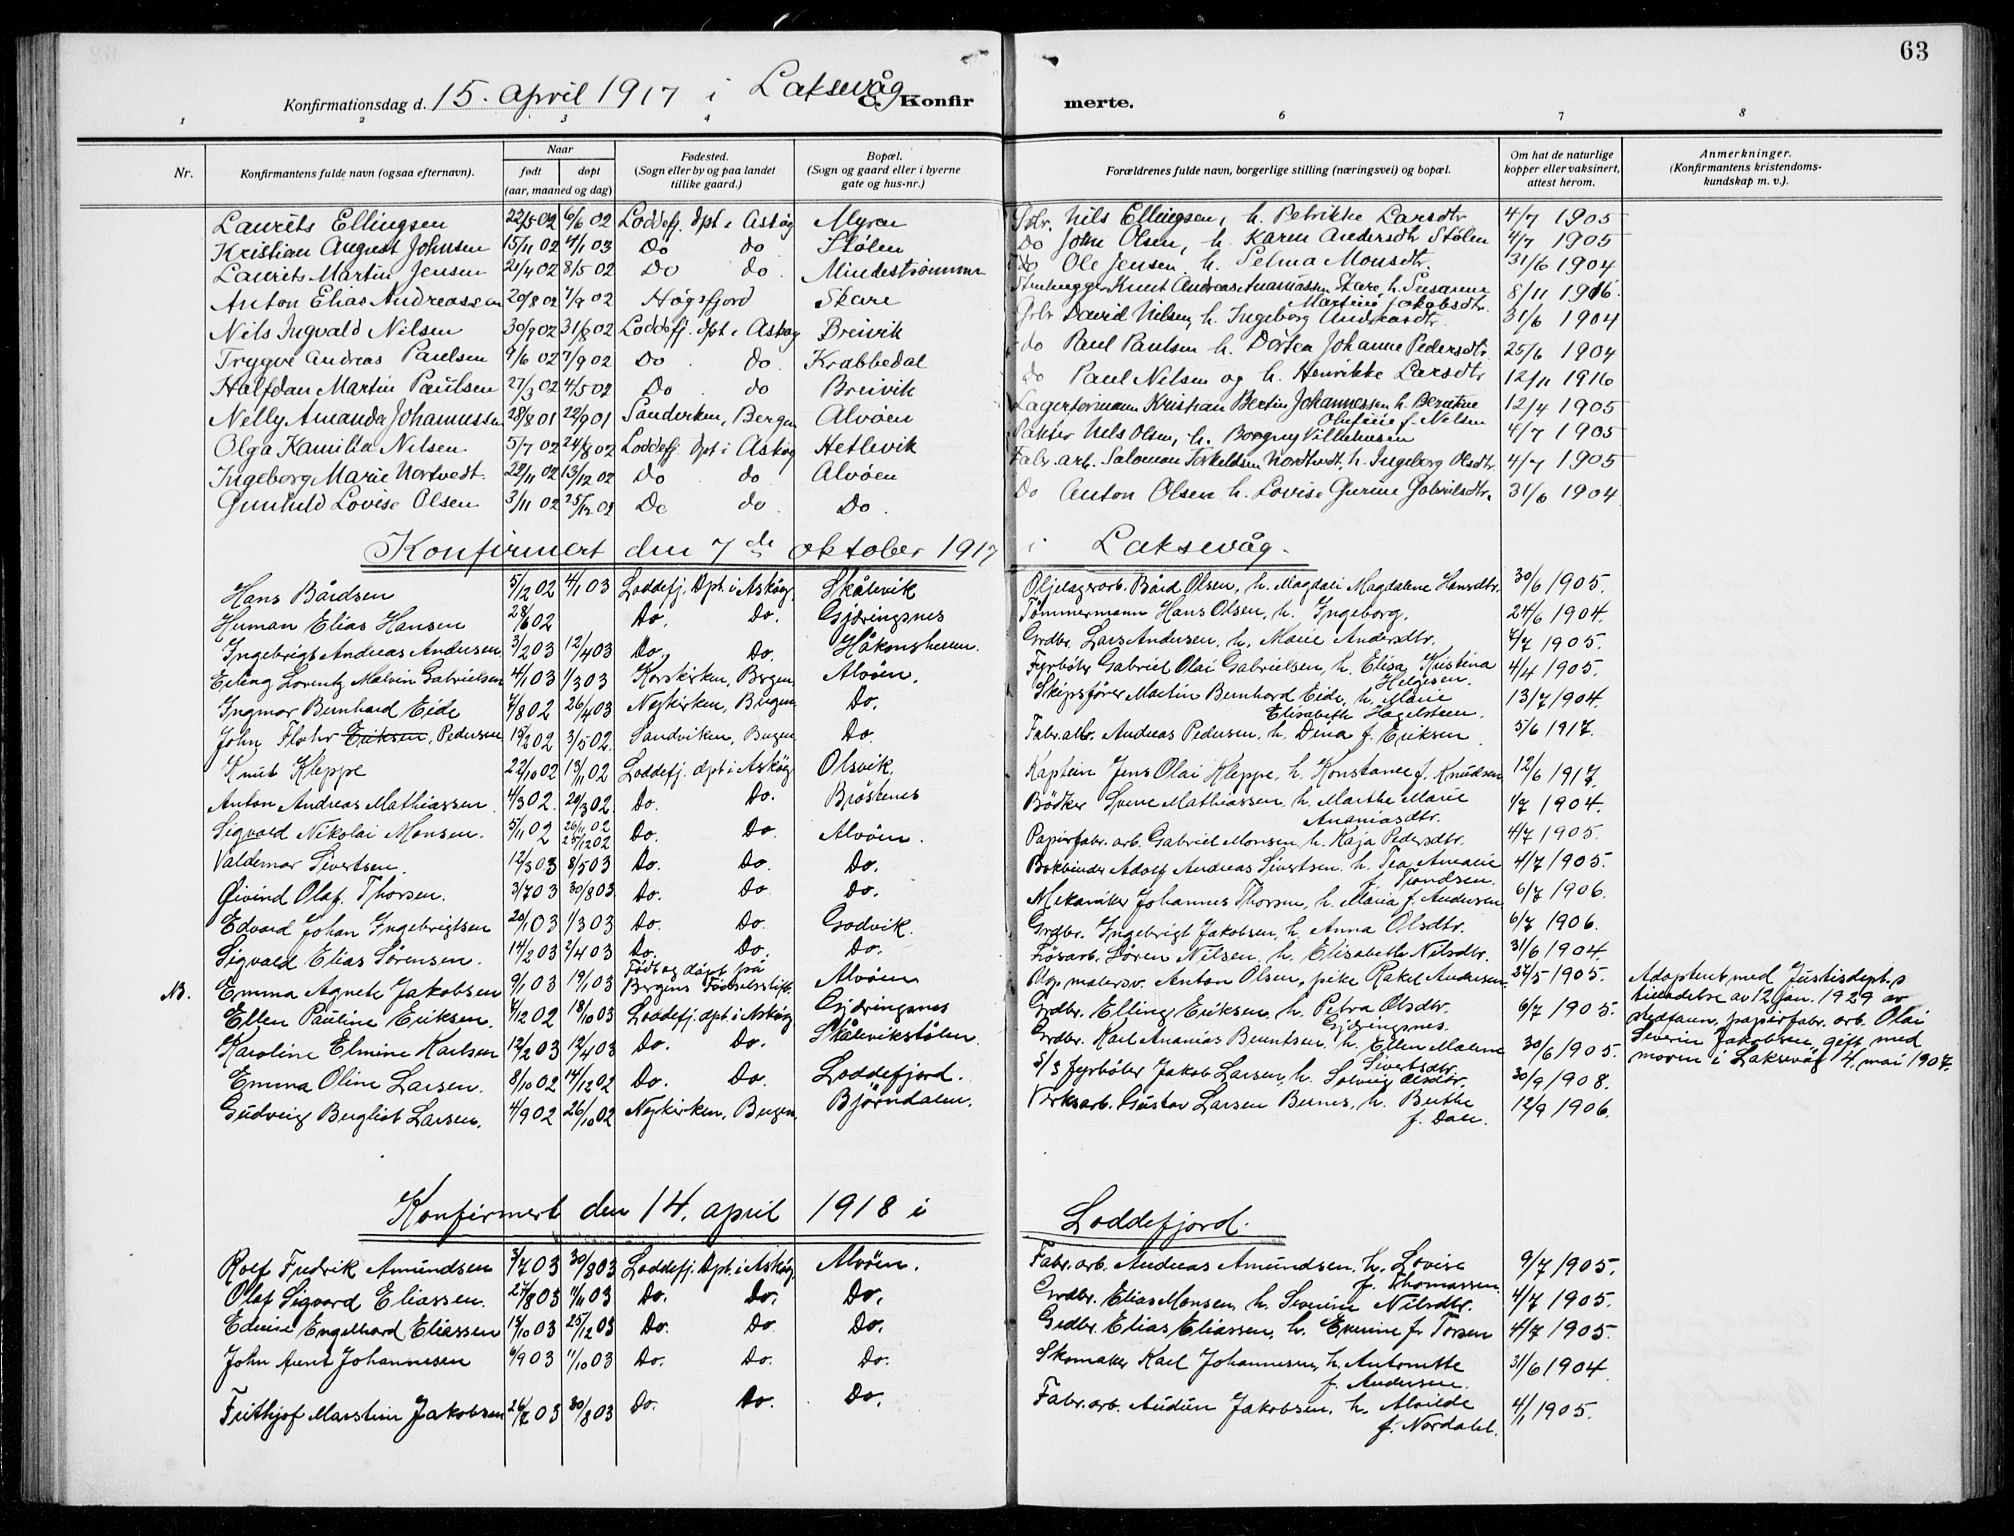 63
Konfirmationsdag d. 15. april 1917 i Laksevåg
C. Konfirmerte.
1 2 3 4 6 7 8
Nr. Konfirmantens fulde navn (ogsaa efternavn). Naar født døpt (aar, maaned og dag) Fødested. (Sogn eller by og paa landet tillike gaard.) Bopæl. (Sogn og gaard eller i byerne gate og hus-nr.) Forældrenes fulde navn, borgerlige stilling (næringsvei) og bopæl. Om hat de naturlige kopper eller vaksinert, attest herom. Anmerkninger. (Konfirmantens kristendomskundskap m. v.).
Laurits Ellingsen 22/5 02 6/6 02 Loddefj. dpt i Askøy Myren Nils Ellingsen, h. Petrikke Larsdtr 4/7 1905
Kristian August Johnsen 15/11 02 4/1 03 Do do Stølen Do John Olsen, h. Karen Andersdtr Stølen 4/7 1905
Laurits Martin Jensen 21/4 02 8/5 02 Do do. Mindestrømmen do Ole Jensen h. Selma Monsdtr. 31/6 1904
Anton Elias Andreassen 20/8 02 7/9 02 Høgsfjord Skare Knut Andreas Ananiassen Skare, h. Susanne Martine Jakobsdtr. 8/11 1916.
Nils Ingvald Nilsen 30/9 02 31/8 02 Loddefj. dpt i Askøy Breivik Grbr David Nilsen, h. Ingeborg Andreasdtr. 31/6 1904
Trygve Andreas Paulsen 9/6 02 7/9 02 Do. do. Krabbedal do Paul Paulsen h. Dortea Johanne Pedersdtr 25/6 1904
Halfdan Martin Paulsen 27/3 02 4/5 02 Do. do Breivik Do Paul Nilsen og h. Henrikke Larsdtr 12/11 1916
Nelly Amanda Johannessen 28/8 01 22/9 01 Sandvirken, Bergen Alvøen Lagerformann Kristian Bertin Johannessen h. Berntine Olufine f. Nelsen 12/4 1905
Olga Kamilla Nilsen 5/7 02 24/8 02 Loddefj. dpt i Askøy Hetlevik Nils Olsen, h. Borgny Villumsen 4/7 1905
Ingeborg Marie Nortvedt. 22/11 02 13/12 02 Do do. Alvøen Fabr. arb. Salomon Terkeldsen Nordtvedt, h. Ingeborg Olsdtr. 4/7 1905
Gunhild Lovise Olsen 3/11 02 25/12 02 Do do. Do. Do Anton Olsen h. Lovise Gurine Gabrielsdtr. 31/6 1904
Konfirmert den 7de oktober 1917 i Laksevåg.
Hans Bårdsen 5/12 02 4/1 03 Loddefj. Dpt. i Askøy. Skålevik Oljelagerarb. Bård Olsen, h. Magdali Magdalene Hansdtr. 30/6 1905.
Herman Elias Hansen 28/6 02 Do. Do. Gjæringsnes Tømmermann Hans Olsen, h. Ingeborg. 24/6 1904.
Ingebrigt Andreas Andersen 3/2 03 12/4 03 Do. Do. Håkonshellen. Grdbr. Lars Andersen, h. Marie Andersdtr. 7/7 1905.
Erling Lorentz Malvin Gabrielsen 4/1 03 1/3 03 Korskirken, Bergen Alvøen. Fyrbøter Gabriel Olai Gabrielsen, h. Elisa Kristina Helgesen. 4/4 1905.
Ingmar Bernhard Eide 7/8 02 26/4 03 Nykirken, Bergen Do. Skipsfører Martin Bernhard Eide, h. Marie Elisabeth Hagelsteen. 13/7 1904.
John Flohr Eriksen, Pedersen 15/2 02 3/5 02. Sandviken, Bergen Do. Fabr. arb. Andreas Pedersen, h. Dina f. Eriksen 5/6 1917.
Knut Kleppe 22/10 02 13/11 02 Loddefj. dpt. i Askøy Olsvik. Kaptein Jens Olai Kleppe, h. Konstance f. Knudsen 12/6 1917.
Anton Andreas Mathiassen 4/3 02. 29/3 02. Do. Do. Brøskenes Bødker Sverre Mathiassen h. Marthe Marie Ananiasdtr. 4/7 1904.
Sigvald Nikolai Monsen. 5/11 02 26/11 02 25/12 02 Do. Do. Alvøen. Papirfabr. arb. Gabriel Monsen, h. Kaja Pedersdtr. 4/7 1905.
Valdemar Sivertsen. 12/3 03 8/5 03 Do. Do. Do. Bokbinder Adolf Andreas Sivertsen. h. Tea Amalie f. Trondsen. 4/7 1905.
Øivind Olaf. Thorsen. 3/7 03 30/8 03 Do. Do. Do. Mekaniker Johannes Thorsen, h. Maria f. Andersen 6/7 1906.
Edvard Johan Ingebrigtsen 20/1 03 1/3 03 Do. Do. Godvik. Grdbr. Ingebrigt Jakobsen, h. Anna Olsdtr. 6/7 1906.
Sigvald Elias Sørensen. 14/2 03 2/4 03 Do. Do. Do. Løsarb. Søren Nilsen, h. Elisabeth Nilsdtr. 31/6 1904.
NB. Emma Agnete Jakobsen 9/1 03 19/1 03 Født og døpt på Bergens Fødselsstift. Alvøen Anton Olsen, pike Rakel Andersen 27/5 1905. Adoptert med Justisdept.s tilladelse av 12 jan. 1929 av stedfaren, papirfabr. arb. Olai Severin Jakobsen, gift med moren i Laksevåg 4 mai 1907.
Ellen Pauline Eriksen. 7/12 02 18/10 03 Loddefj. dpt. i Askøy Gjæringsnes Grdbr. Elling Eriksen, h. Petra Olsdtr. Gjæringsnes. 6/7 1905.
Karoline Elmine Karlsen 12/2 03 12/4 03 Do. Do. Skålevikstølen. Grdbr. Karl Ananias Berntsen, h. Ellen Malene Sivertsdtr. 30/6 1905.
Emma Oline Larsen. 8/10 02 14/12 02 Do. Do. Loddefjord. S/S Fyrbøter Jakob Larsen, h. Solveig Olsdtr. 30/9 1908.
Gudveig Bergliot Larsen. 4/9 02 26/10 02 Nykirken, Bergen Bjørndalen. Verksarb. Gustav Larsen Bernes, h. Berthe f. Dale. 12/9 1906.
Konfirmert den 14. april 1918 i Loddefjord.
Rolf Fredrik Amundsen 3/7 03 30/8 03 Loddefj. Dpt. i Askøy. Alvøen. Fabr. arb. Andreas Amundsen, h. Lovise f. Thomassen 9/7 1905.
Olaf Sigvard Eliassen. 27/8 03 1/11 03 Do. Do. Do. Grdbr. Elias Monsen, h. Severine Nilsdtr. 4/7 1905.
Edvin Engelhard Eliassen 18/10 03 25/12 03 Do. Do. Do. Grdbr. Elias Eliassen, h. Emmine f. Torsen 4/7 1905.
John Arent Johannesen 6/9 03 11/10 03 Do. Do. Do. Skomaker Karl Johannesen, h. Antonette f. Andersen. 31/6 1904
Frithjof Marstein Jakobsen 26/7 03 30/8 03 Do. Do. Do. Fabr. arb. Audun Jakobsen, h. Alvilde f. Nordahl. 4/1 1905.